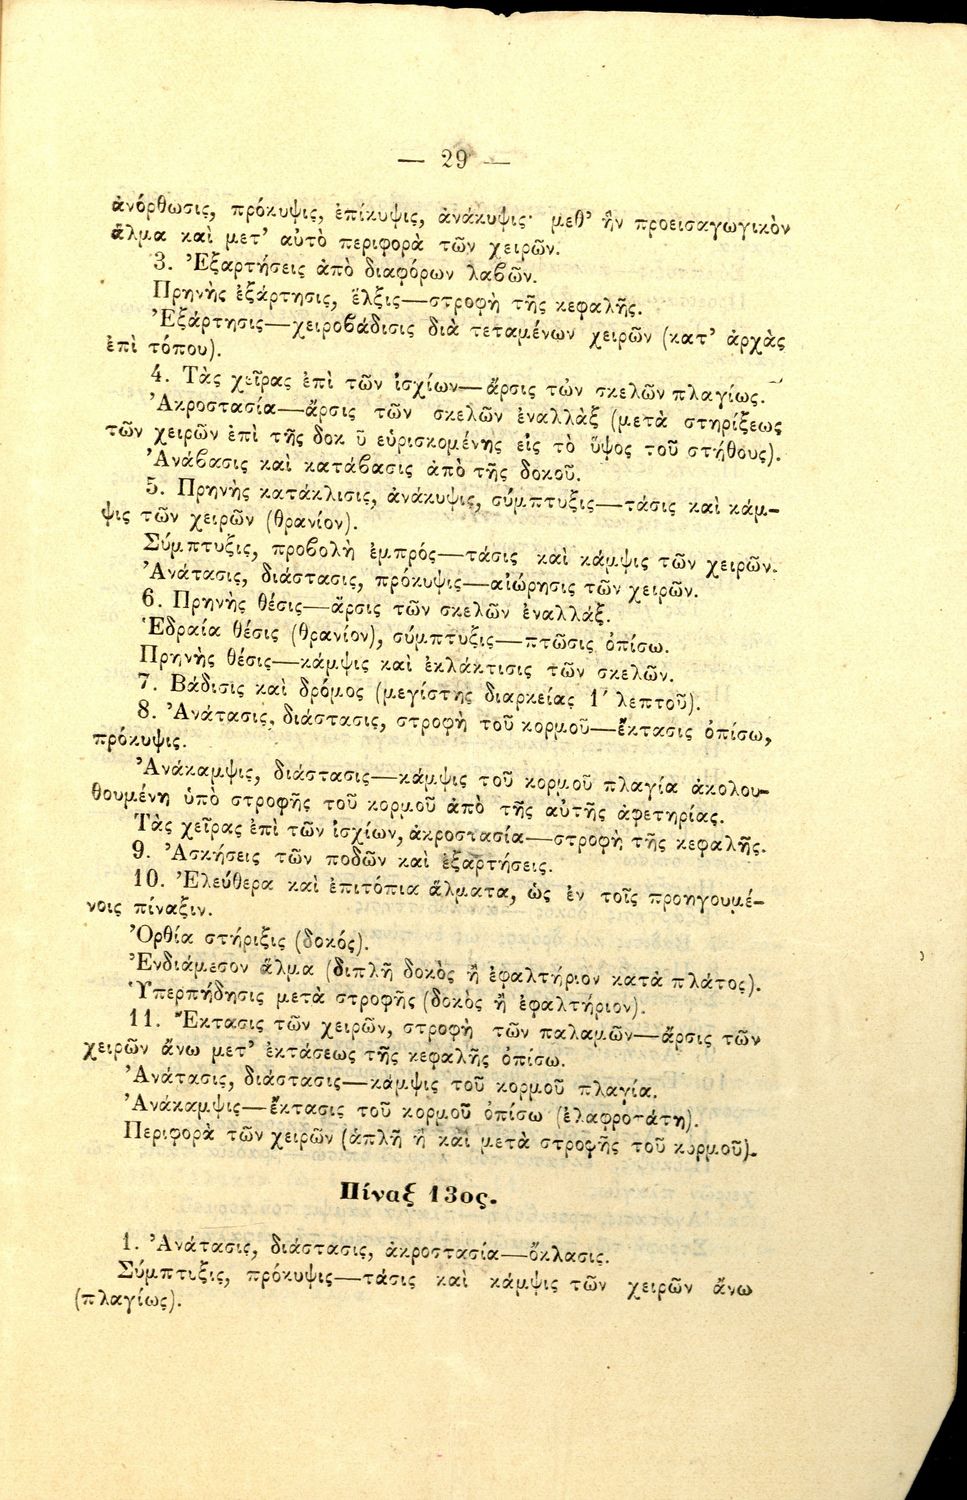 — 29 —
ἀνόρθωσις, πρόκυψις, ἐπίκυψις, ἀνάκυψις· μεθ' ἣν προεισαγωγικὸν
ἅλμα καὶ μετ' αὐτὸ περιφορὰ τῶν χειρῶν.
3. Ἐξαρτήσεις ἀπὸ διαφόρων λαβῶν.
Πρηνὴς ἐξάρτησις, ἕλξις—στροφὴ τῆς κεφαλῆς.
Ἐξάρτησις—χειροβάδισις διὰ τεταμένων χειρῶν (κατ' ἀρχὰς
ἐπὶ τόπου).
4. Τὰς χεῖρας ἐπὶ τῶν ἰσχίων—ἄρσις τῶν σκελῶν πλαγίως.
Ἀκροστασία—ἄρσις τῶν σκελῶν ἐναλλὰξ (μετὰ στηρίξεως
τῶν χειρῶν ἐπὶ τῆς δοκ ῦ εὑρισκομένης εἰς τὸ ὕψος τοῦ στήθους).
Ἀνάβασις καὶ κατάβασις ἀπὸ τῆς δοκοῦ.
5. Πρηνὴς κατάκλισις, ἀνάκυψις, σύμπτυξις—τάσις καὶ κάμ-
ψις τῶν χειρῶν (θρανίον).
Σύμπτυξις, προβολὴ ἐμπρός—τάσις καὶ κάμψις τῶν χειρῶν.
Ἀνάτασις, διάστασις, πρόκυψις—αἰώρησις τῶν χειρῶν.
6. Πρηνὴς θέσις—ἄρσις τῶν σκελῶν ἐναλλάξ.
Ἑδραία θέσις (θρανίον), σύμπτυξις—πτῶσις ὀπίσω.
Πρηνὴς θέσις—κάμψις καὶ ἐκλάκτισις τῶν σκελῶν.
7. Βάδισις καὶ δρόμος (μεγίστης διαρκείας 1' λεπτοῦ).
8. Ἀνάτασις, διάστασις, στροφὴ τοῦ κορμοῦ—ἔκτασις ὀπίσω,
πρόκυψις.
Ἀνάκαμψις, διάστασις—κάμψις τοῦ κορμοῦ πλαγία ἀκολου-
θουμένη ὑπὸ στροφῆς τοῦ κορμοῦ ἀπὸ τῆς αὐτῆς ἀφετηρίας.
Τὰς χεῖρας ἐπὶ τῶν ἰσχίων, ἀκροστασία—στροφὴ τῆς κεφαλῆς.
9. Ἀσκήσεις τῶν ποδῶν καὶ ἐξαρτήσεις.
10. Ἐλεύθερα καὶ ἐπιτόπια ἅλματα, ὡς ἐν τοῖς προηγουμέ-
νοις πίναξιν.
Ὀρθία στήριξις (δοκός).
Ἐνδιάμεσον ἅλμα (διπλῆ δοκὸς ἢ ἐφαλτήριον κατὰ πλάτος).
Ὑπερπήδησις μετὰ στροφῆς (δοκὸς ἢ ἐφαλτήριον).
11. Ἔκτασις τῶν χειρῶν, στροφὴ τῶν παλαμῶν—ἄρσις τῶν
χειρῶν ἄνω μετ' ἐκτάσεως τῆς κεφαλῆς ὀπίσω.
Ἀνάτασις, διάστασις—κάμψις τοῦ κορμοῦ πλαγία.
Ἀνάκαμψις—ἔκτασις τοῦ κορμοῦ ὀπίσω (ἐλαφροτάτη).
Περιφορὰ τῶν χειρῶν (ἁπλῆ ἢ καὶ μετὰ στροφῆς τοῦ κορμοῦ).
Πίναξ 13ος.
1. Ἀνάτασις, διάστασις, ἀκροστασία—ὄκλασις.
Σύμπτυξις, πρόκυψις—τάσις καὶ κάμψις τῶν χειρῶν ἄνω
(πλαγίως).